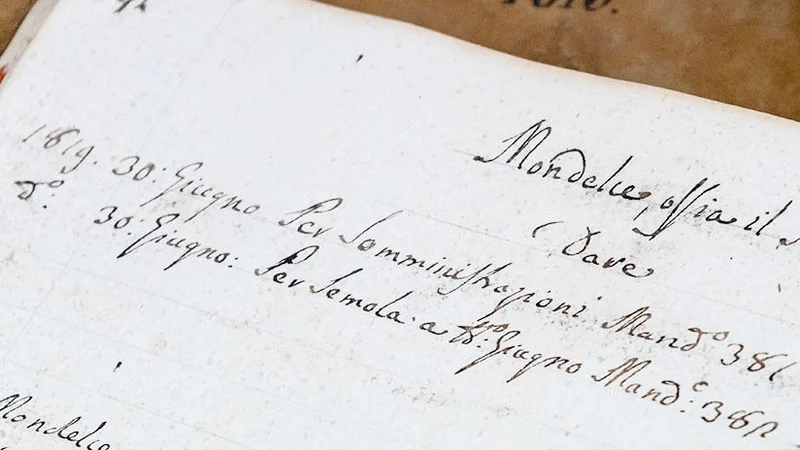 Mondelce, ossia il
Dare
1819. 30: Giugno Per Somministrazioni Mand.º 381
dº. 30: Giugno: Per Semola a tt:º Giugno Mand:º 382
Mondelce